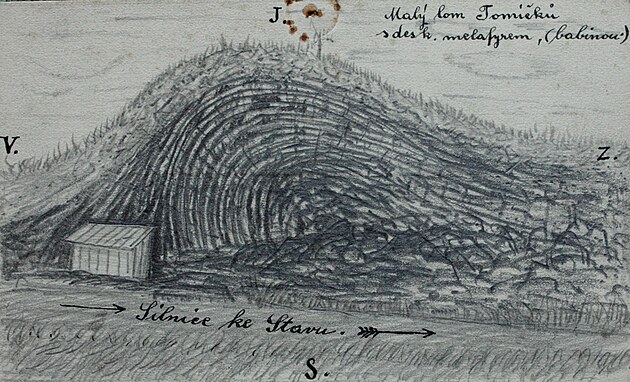 J.
Malý lom Tomíčků
s desk. melafyrem, (babinou.)
V.
Z.
Silnice ke Stavu.
S.